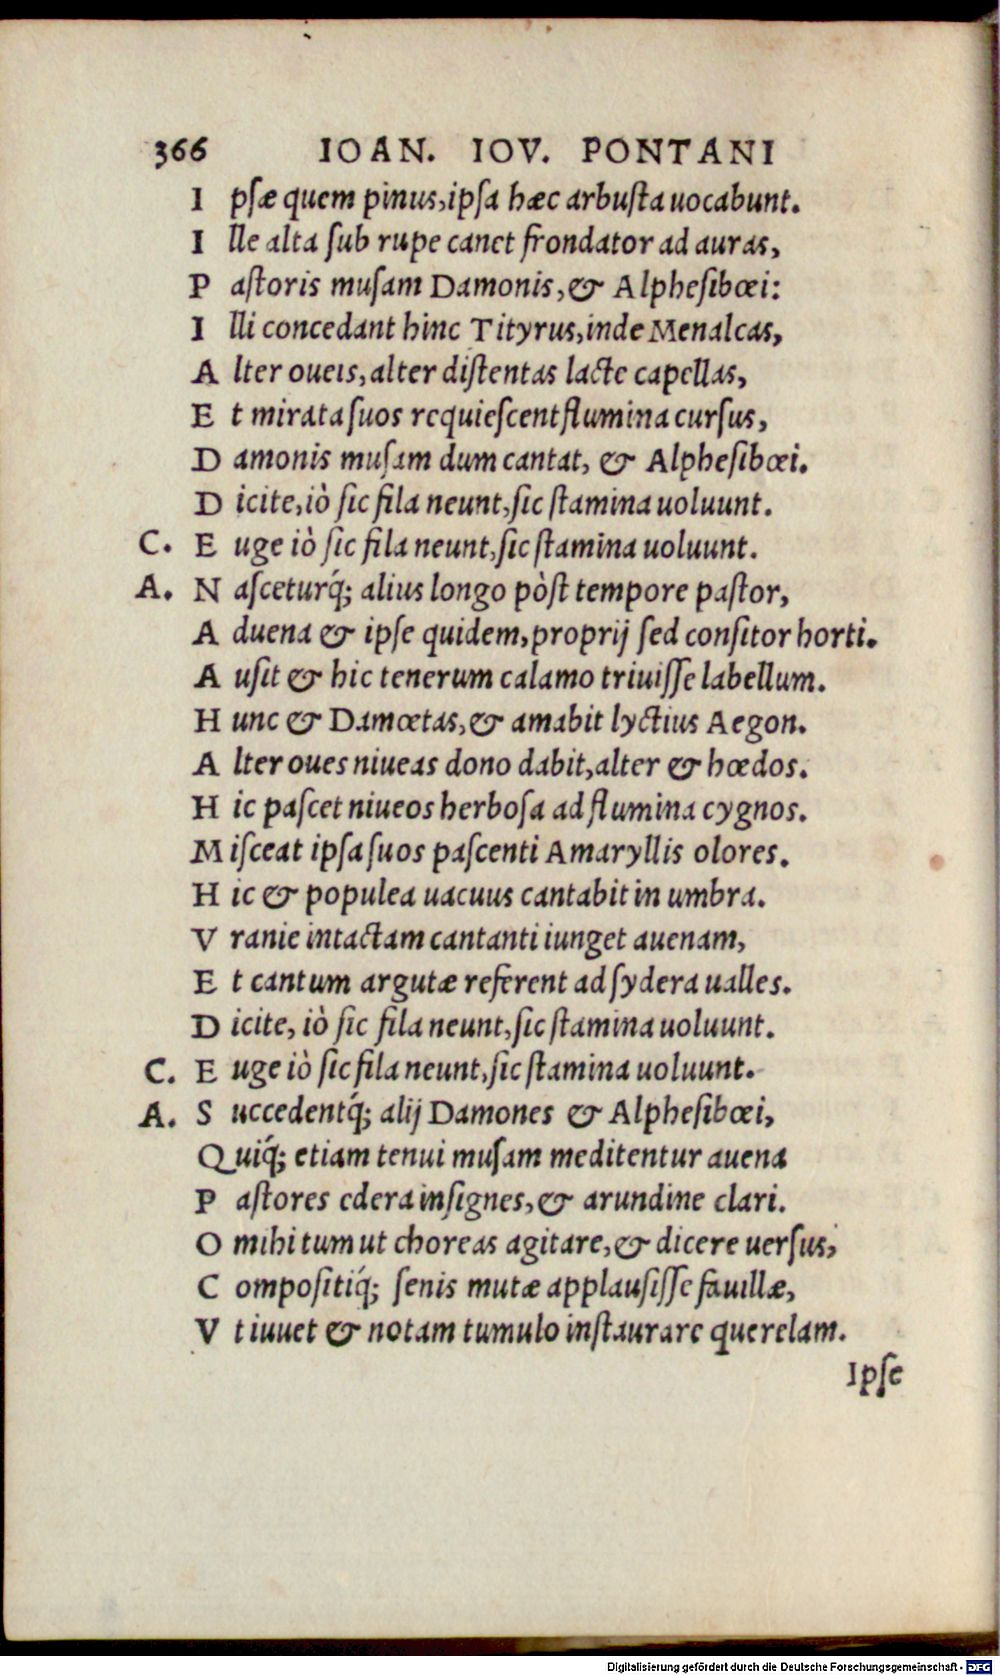 366 IOAN. IOV. PONTANI
I pſæ quem pinus, ipſa hæc arbuſta uocabunt.
I lle alta ſub rupe canet frondator ad auras,
P aſtoris muſam Damonis, & Alpheſibœi:
I lli concedant hinc Tityrus, inde Menalcas,
A lter oueis, alter diſtentas lacte capellas,
E t mirata ſuos requieſcent flumina curſus,
D amonis muſam dum cantat, & Alpheſibœi.
D icite, iò ſic fila neunt, ſic ſtamina uoluunt.
C. E uge iò ſic fila neunt, ſic ſtamina uoluunt.
A. N aſceturq́; alius longo pòſt tempore paſtor,
A duena & ipſe quidem, proprij ſed conſitor horti.
A uſit & hic tenerum calamo triuiſſe labellum.
H unc & Damœtas, & amabit lyctius Aegon.
A lter oues niueas dono dabit, alter & hœdos.
H ic paſcet niueos herboſa ad flumina cygnos.
M iſceat ipſa ſuos paſcenti Amaryllis olores.
H ic & populea uacuus cantabit in umbra.
V ranie intactam cantanti iunget auenam,
E t cantum argutæ referent ad ſydera ualles.
D icite, iò ſic fila neunt, ſic ſtamina uoluunt.
C. E uge iò ſic fila neunt, ſic ſtamina uoluunt.
A. S uccedentq́; alij Damones & Alpheſibœi,
Q uiq́; etiam tenui muſam meditentur auena
P aſtores edera inſignes, & arundine clari.
O mihi tum ut choreas agitare, & dicere uerſus,
C ompoſitiq́; ſenis mutæ applauſiſſe fauillæ,
V t iuuet & notam tumulo inſtaurare querelam.
Ipſe
Digitalisierung gefördert durch die Deutsche Forschungsgemeinschaft - DFG